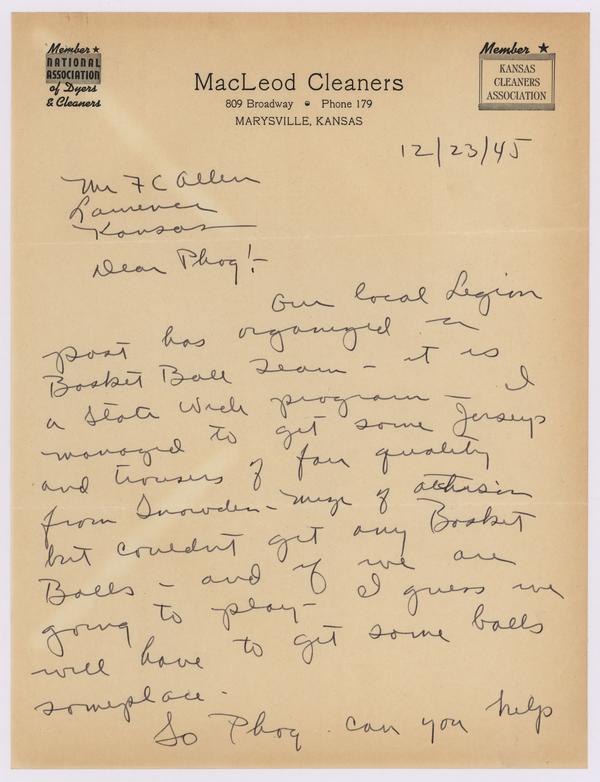 Member ★
NATIONAL
ASSOCIATION
of Dyers
& Cleaners
MacLeod Cleaners
809 Broadway • Phone 179
MARYSVILLE, KANSAS
Member ★
KANSAS
CLEANERS
ASSOCIATION
12/23/45
Mr F C Allen
Lawrence
Kansas
Dear Phog!-
Our local Legion
post has organized a
Basket Ball Team - it is
a State Wide program - I
managed to get some Jerseys
and trousers of fair quality
from Snowden-Mize of Atchison
but couldn't get any Basket
Balls - and if we are
going to play - I guess we
will have to get some balls
someplace.
So Phog. can you help